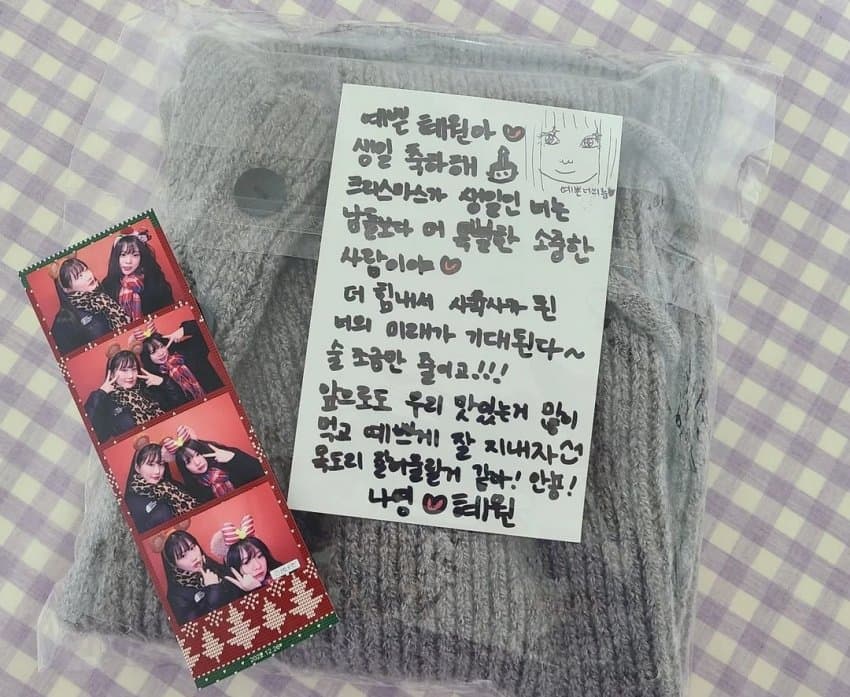 예쁜 혜원아
생일 축하해
예쁜 너의 눈
크리스마스가 생일인 너는
남들보다 더 특별한 소중한
사람이야
더 힘내서 사육사가 된
너의 미래가 기대된다~
술 조금만 줄이고!!!
앞으로도 우리 맛있는거 많이
먹고 예쁘게 잘 지내자
목도리 잘어울릴거 같아! 안뇽!
나영 혜원